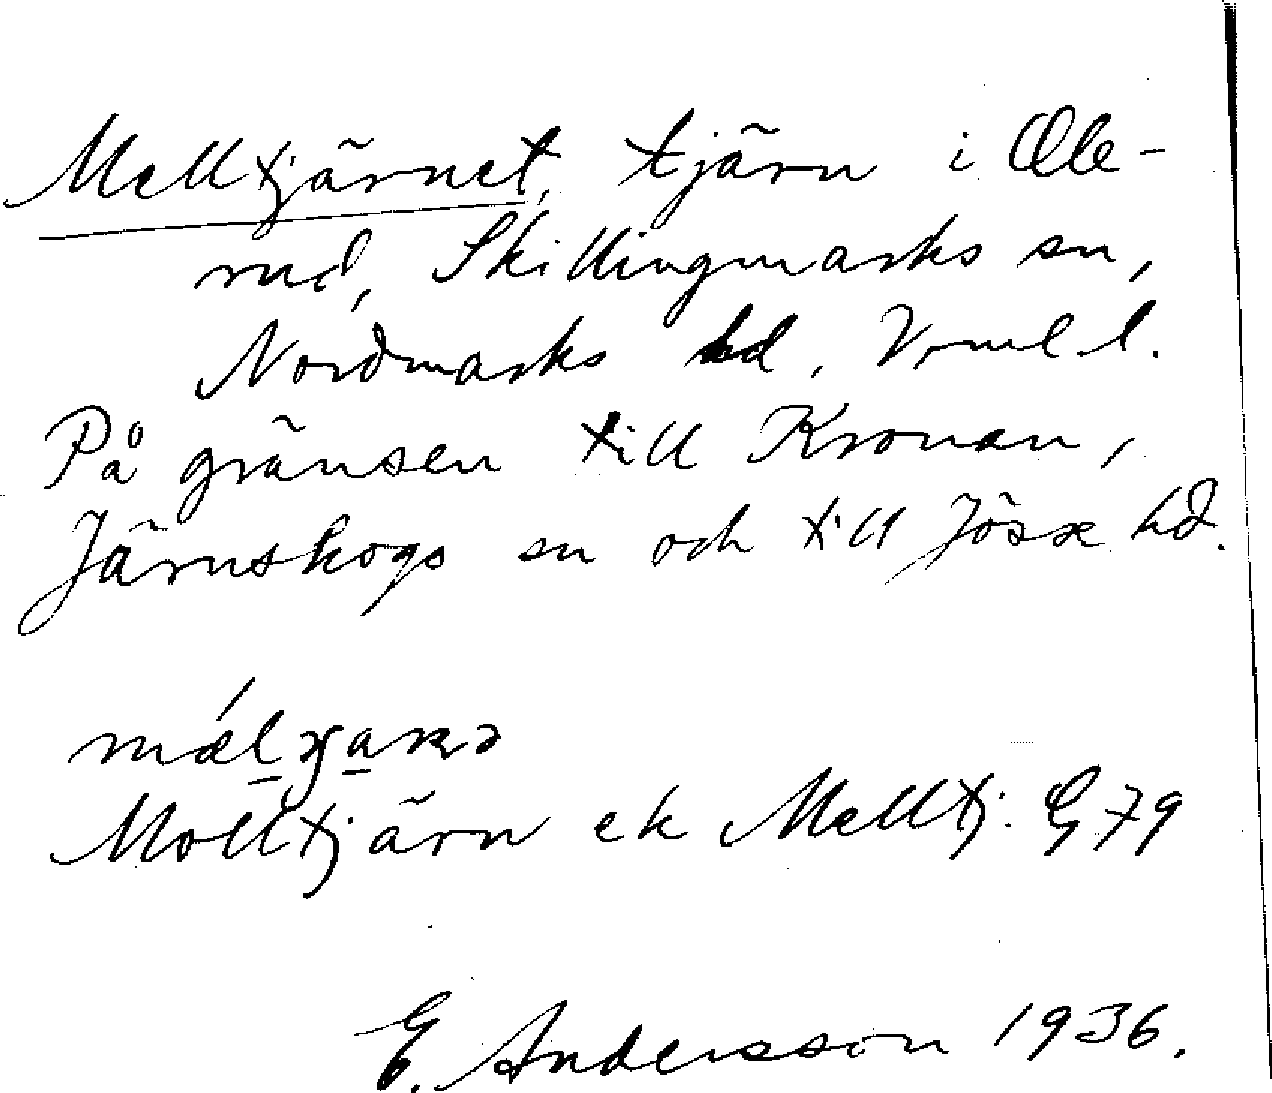 Melltjärnet, tjärn i Ole-
rud, Skillingmarks sn,
Nordmarks hd, Vrml l.
På gränsen till Kronan,
Järnskogs sn och till Jösse hd.
Molltjärn ek Melltj. G 79
E. Andersson 1936.